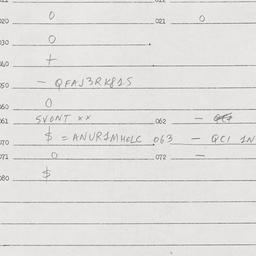 020 0 021 0
030 0
040 +
050 - QFAJ3RK815
060 0
061 SVONT ×× 062 -
070 $ = ANUR1MHOLC 063 - QCI 1N
071 0 072 -
080 $